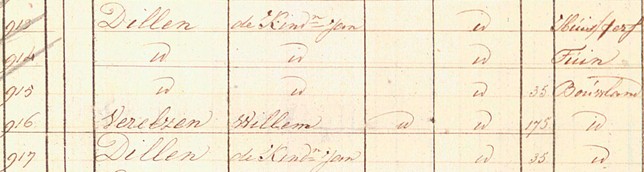 913 Dillen de Kindn Jan id Huis Erf
914 id id id Tuin
915 id id id 35 Bouwland
916 Verelzen Willem id id 175 id
917 Dillen de Kindn Jan id 35 id